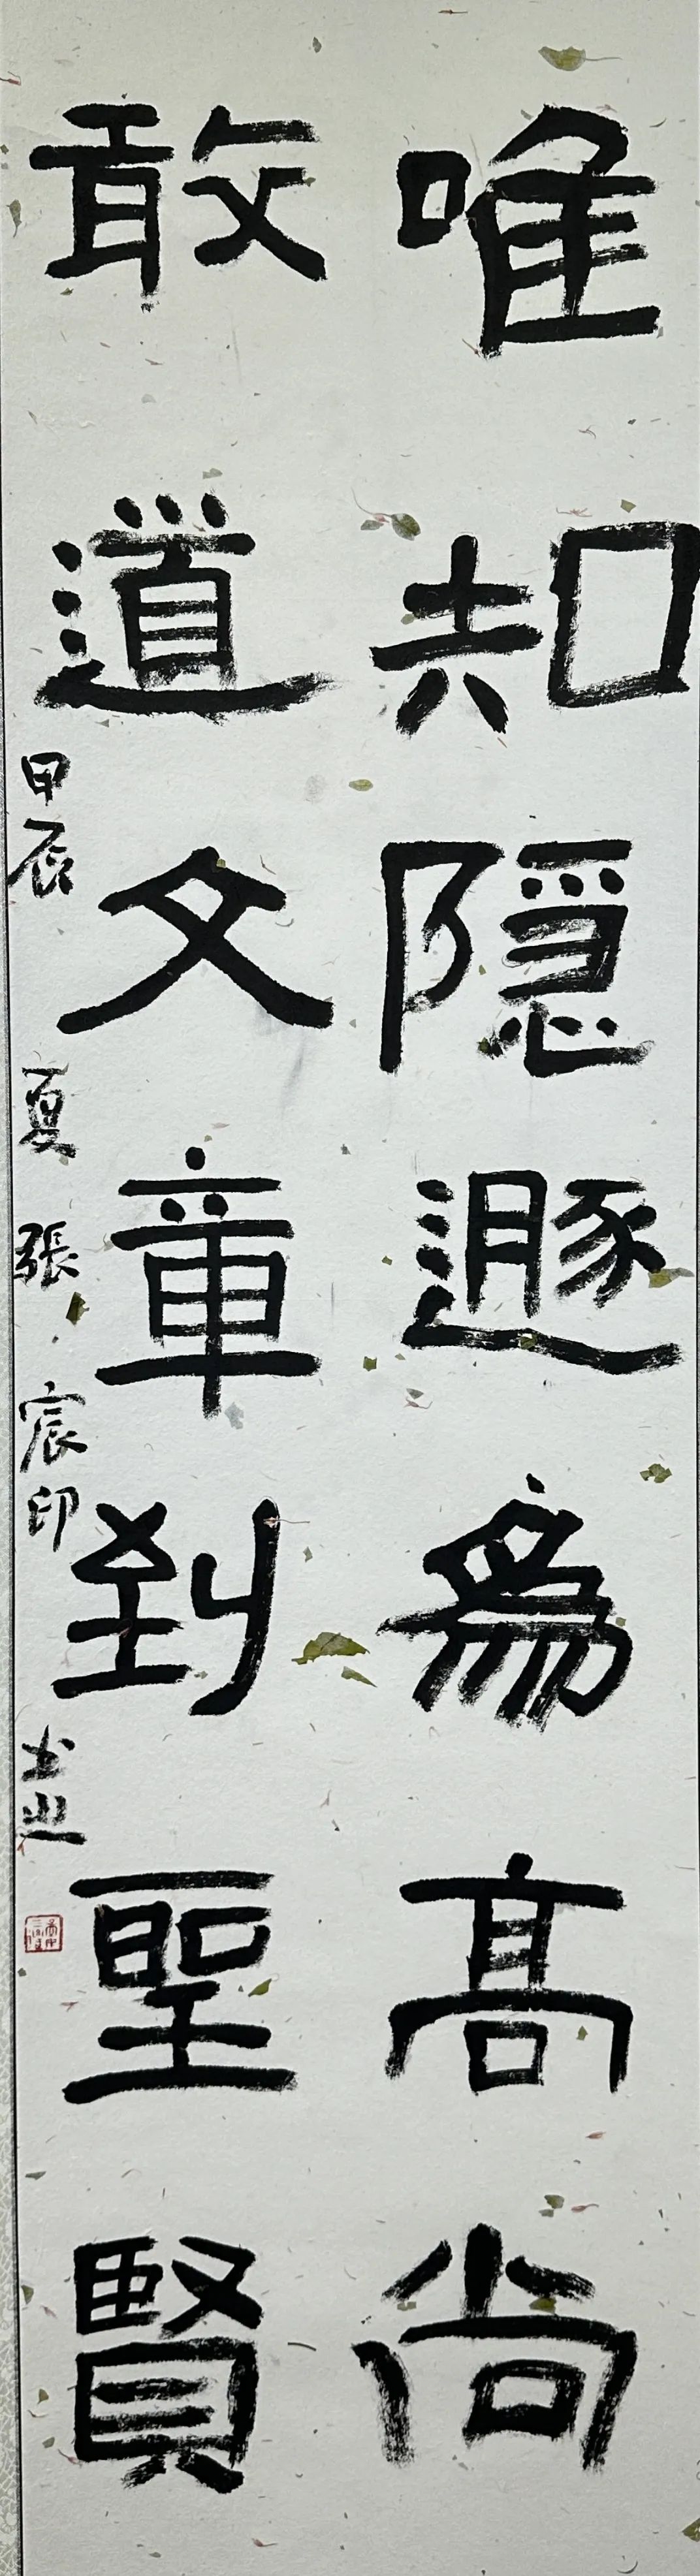 唯知隐遯為高尚
敢道文章到聖賢
甲辰夏張宸印